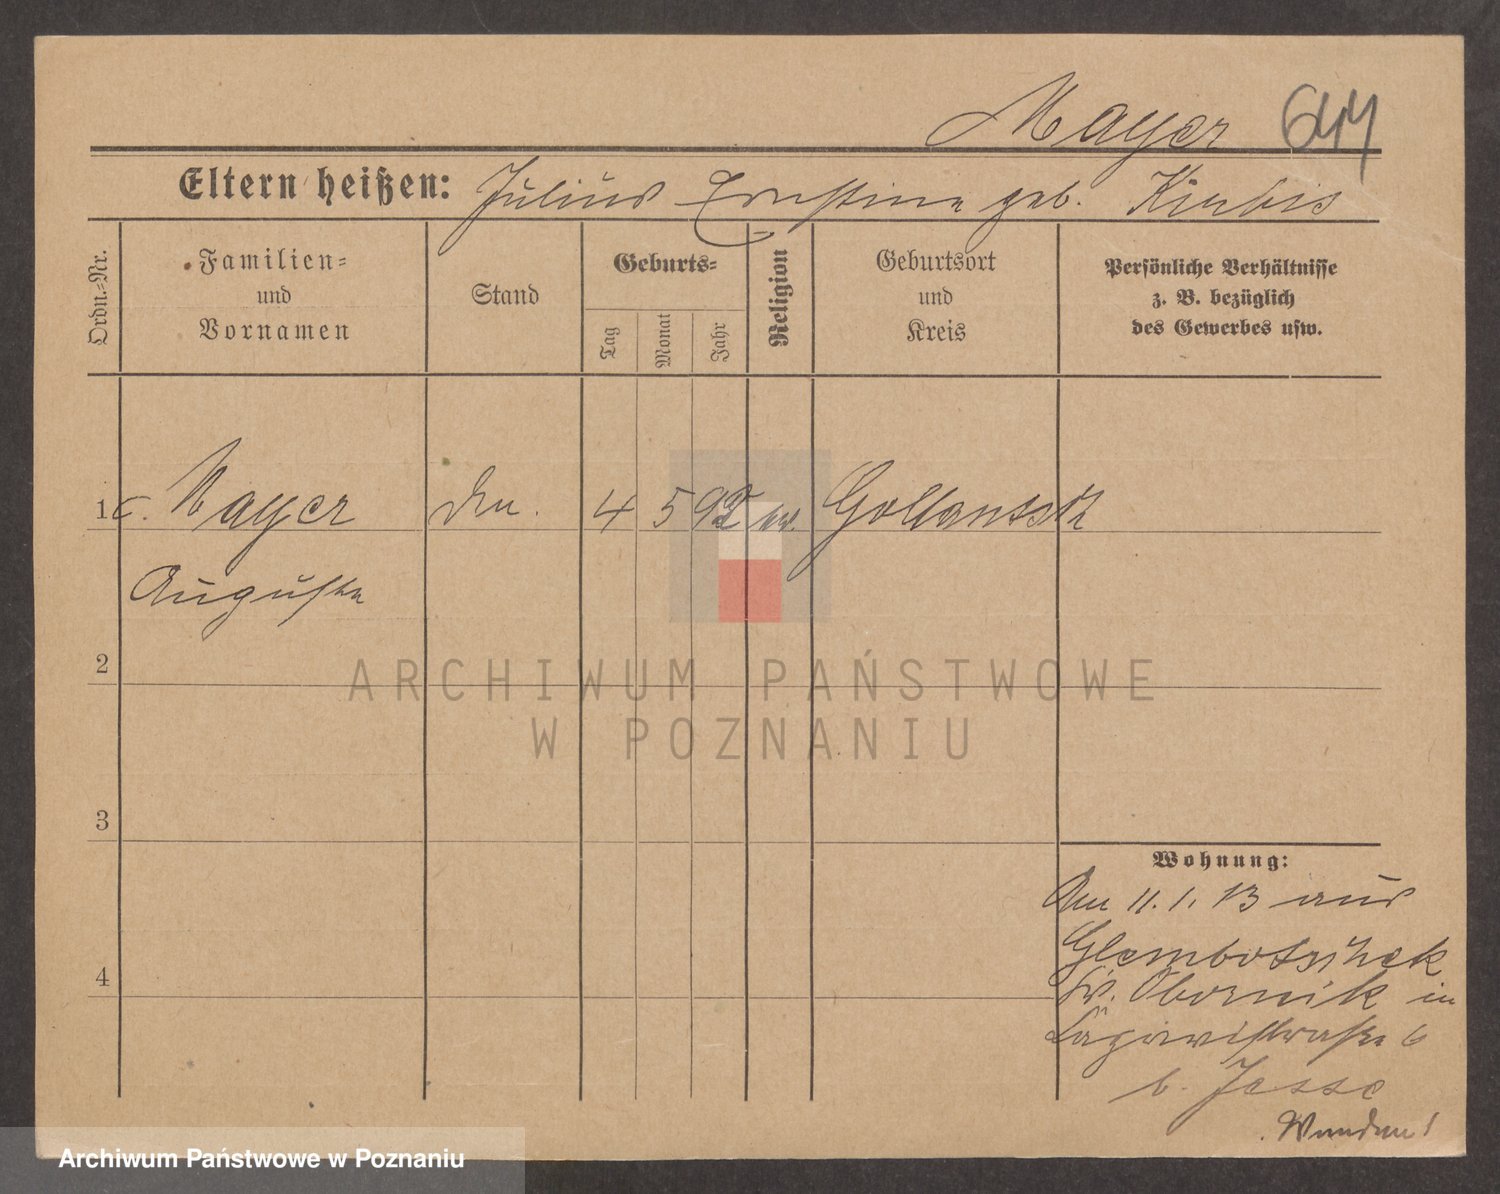 Mayer 644
Eltern heißen: Julius Ernestine geb. Kinbis
Ordn.-Nr.
Familien-
und
Vornamen
Stand
Geburts-
Tag
Monat
Jahr
Religion
Geburtsort
und
Kreis
Persönliche Verhältnisse
z. B. bezüglich
des Gewerbes usw.
1 Mayer 4 5 92 ev. Gollantsch
Auguste
2
3
4
Wohnung:
Am 11.1.13 aus
Obornik in
6
b. Jesse
ARCHIWUM PAŃSTWOWE
W POZNANIU
Archiwum Państwowe w Poznaniu